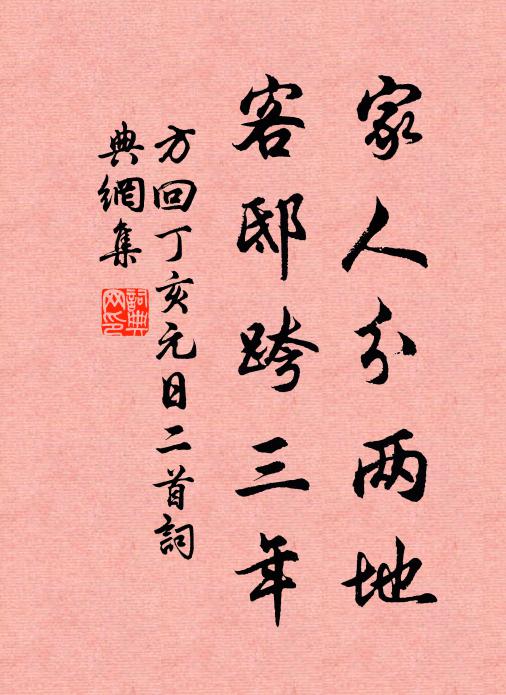 家人分两地
客邸跨三年
方回丁亥元日二首詞
典網集
詞典网印